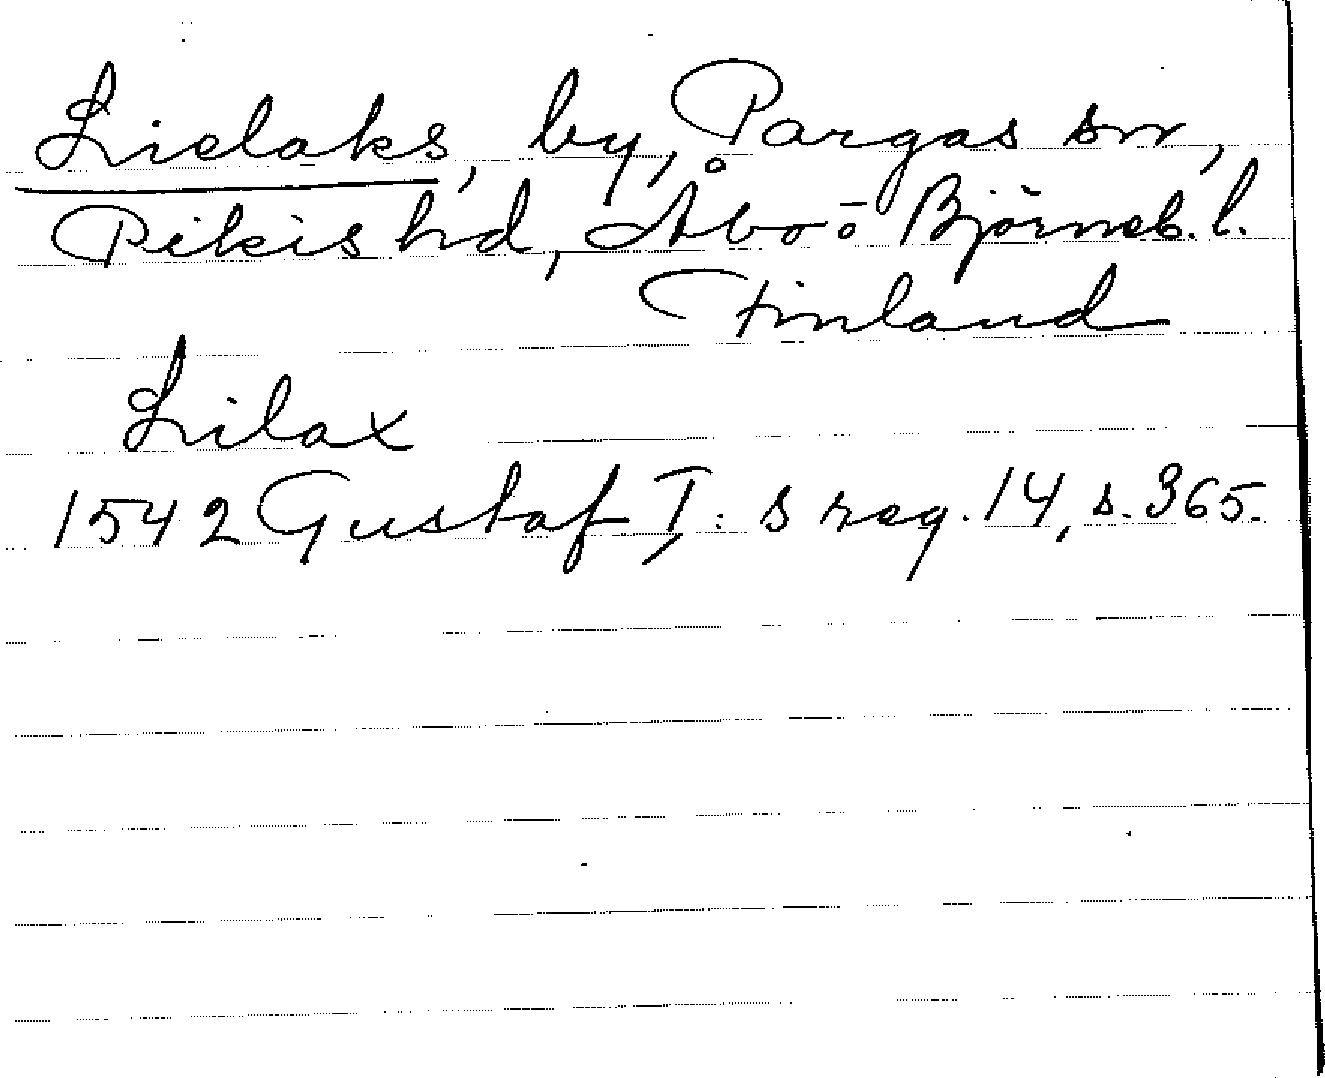 Lielaks, by, Pargas sn,
Pikis hd, Åbo ō Björneb. l.
Finland
Lilax
1542 Gustaf I: s reg. 14, s. 365.